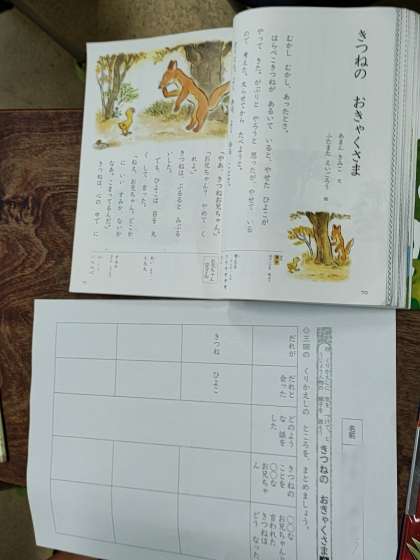 きつねの　おきゃくさま
あまん　きみこ　文
ふたまた　えいごろう　絵
むかし　むかし、あったとさ。
はらぺこきつねが　あるいて　いると、やせた　ひよこが
やって　きた。がぶりと　やろうと　思ったが、やせて　いる
ので　考えた。太らせてから　たべようと。
「やあ、ひよこ。」
「やあ、きつねお兄ちゃん。」
「お兄ちゃん?　やめて　く
れよ。」
きつねは、ぶるると　みぶる
いした。
でも、ひよこは　目を　丸
くして　言った。
「ねえ、お兄ちゃん。どこか
に　いい　すみか　ないか
なあ。こまってるんだ。」
きつねは、心の　中で　に
70
名前
きつねの　おきゃくさま
◎三回の　くりかえしの　ところを、まとめましょう。
だれが
だれと
会った
どのよう
な　話を
した
きつねの
ことを
○○な
お兄ちゃ
ん
○○な
お兄ちゃんと
言われた
きつねは
どう　なった
きつね
ひよこ